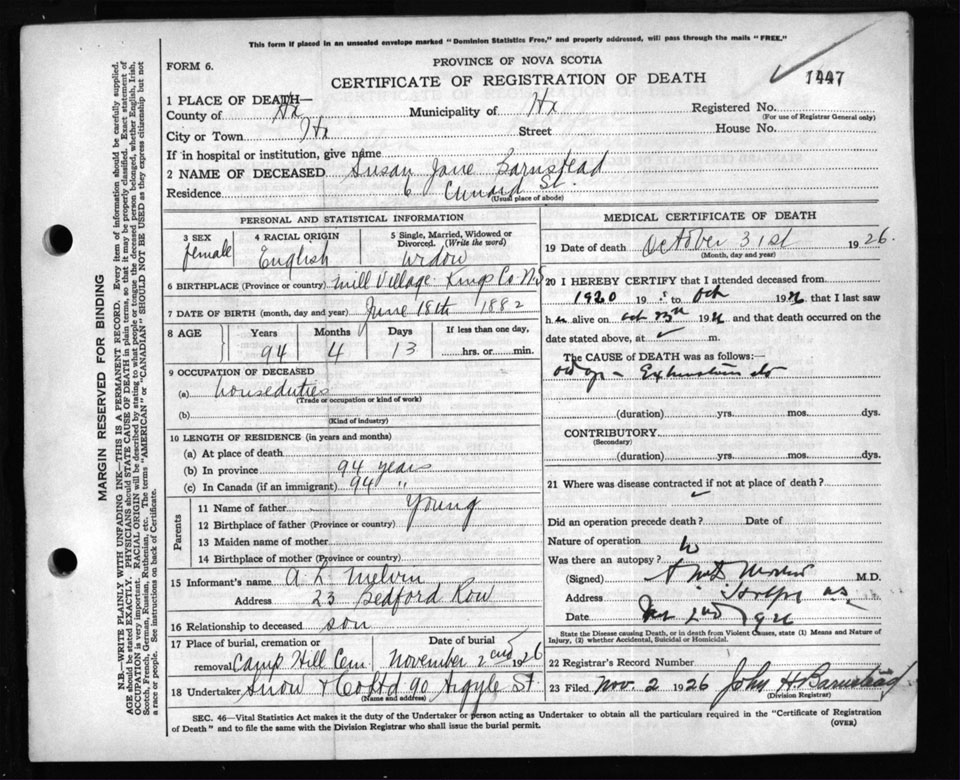 This form if placed in an unsealed envelope marked "Dominion Statistics Free," and properly addressed, will pass through the mails "FREE."
FORM 6.
PROVINCE OF NOVA SCOTIA
CERTIFICATE OF REGISTRATION OF DEATH
1447
1 PLACE OF DEATH—
County of Hx Municipality of Hx Registered No.
(For use of Registrar General only)
City or Town Hx Street House No.
If in hospital or institution, give name
2 NAME OF DECEASED Susan Jane Barnstead
Residence 6 Cunard St.
(Usual place of abode)
PERSONAL AND STATISTICAL INFORMATION
3 SEX female
4 RACIAL ORIGIN English
5 Single, Married, Widowed or Divorced. (Write the word) widow
6 BIRTHPLACE (Province or country) Mill Village Kings Co N.S
7 DATE OF BIRTH (month, day and year) June 18th 1882
8 AGE Years Months Days If less than one day,
94 4 13 hrs. or min.
9 OCCUPATION OF DECEASED
(a) houseduties
(Trade or occupation or kind of work)
(b)
(Kind of industry)
10 LENGTH OF RESIDENCE (in years and months)
(a) At place of death
(b) In province 94 years
(c) In Canada (if an immigrant) 94 "
Parents
11 Name of father Young
12 Birthplace of father (Province or country)
13 Maiden name of mother
14 Birthplace of mother (Province or country)
15 Informant's name A. L. Melvin
Address 23 Bedford Row
16 Relationship to deceased son
17 Place of burial, cremation or removal Camp Hill Cem Date of burial November 2nd 1926
18 Undertaker Snow & Co Ltd 90 Argyle St
(Name and address)
MEDICAL CERTIFICATE OF DEATH
19 Date of death October 31st 1926.
(Month, day and year)
20 I HEREBY CERTIFY that I attended deceased from
1920 19 to Oct 1926 that I last saw
her alive on Oct 1926 and that death occurred on the
date stated above, at m.
The CAUSE of DEATH was as follows:—
Old age – Exhaustion
(duration) yrs. mos. dys.
CONTRIBUTORY
(Secondary)
(duration) yrs. mos. dys.
21 Where was disease contracted if not at place of death?
Did an operation precede death? Date of
Nature of operation
Was there an autopsy?
(Signed) M.D.
Address
Date 2nd 1926
State the Disease causing Death, or in death from Violent Causes, state (1) Means and Nature of
Injury, (2) whether Accidental, Suicidal or Homicidal.
22 Registrar's Record Number
23 Filed Nov. 2 1926 John H. Barnstead
(Division Registrar)
SEC. 46—Vital Statistics Act makes it the duty of the Undertaker or person acting as Undertaker to obtain all the particulars required in the "Certificate of Registration
of Death" and to file the same with the Division Registrar who shall issue the burial permit.
(OVER)
MARGIN RESERVED FOR BINDING
N.B.—WRITE PLAINLY WITH UNFADING INK—THIS IS A PERMANENT RECORD. Every item of information should be carefully supplied.
AGE should be stated EXACTLY. PHYSICIANS should STATE CAUSE OF DEATH in plain terms, so that it may be properly classified. Exact statement of
OCCUPATION is very important. RACIAL ORIGIN will be described by stating to what people or tongue the deceased person belonged, whether English, Irish,
Scotch, French, German, Russian, Ruthenian, etc. The terms "AMERICAN" or "CANADIAN" SHOULD NOT BE USED as they express citizenship but not
a race or people. See instructions on back of Certificate.